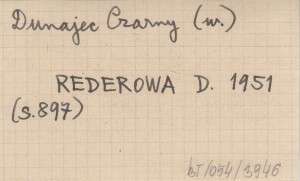 Dunajec Czarny (w.)
REDEROWA D. 1951
(s.897)
bT/054/3946